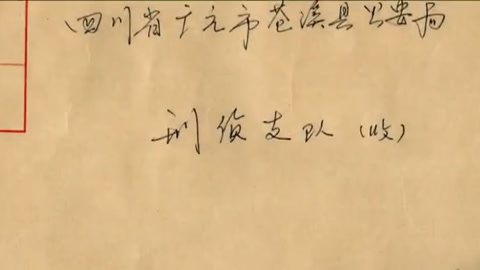 四川省广元市苍溪县公安局
刑侦支队（收）